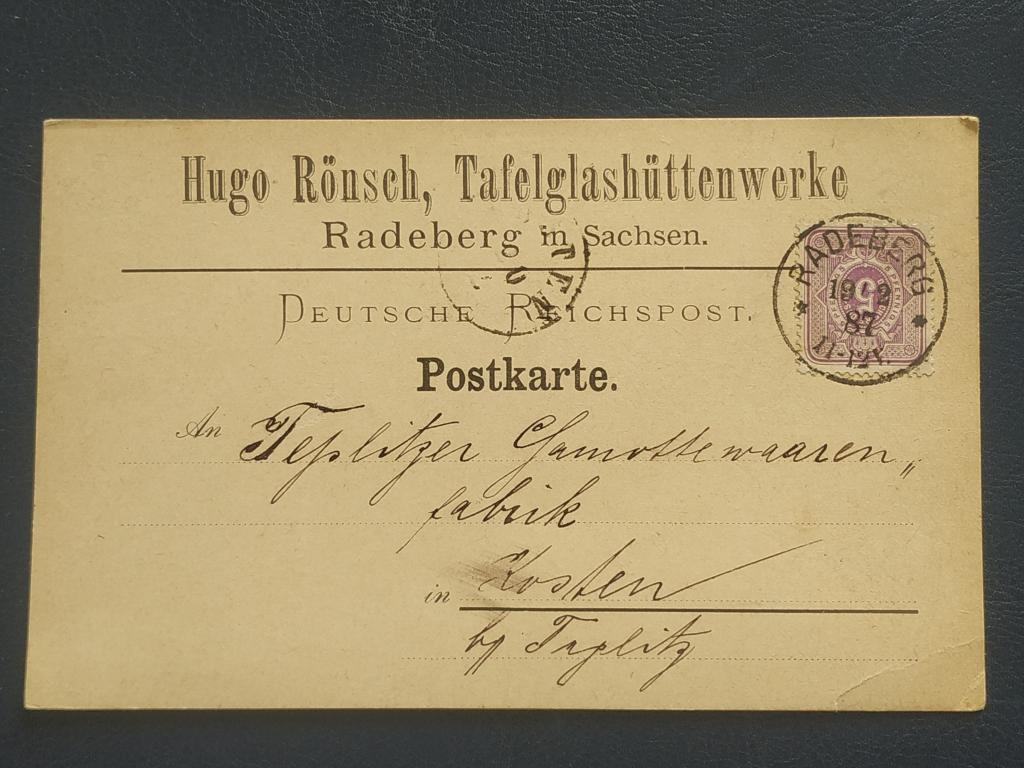 Hugo Rönsch, Tafelglashüttenwerke
Radeberg in Sachsen.
DEUTSCHE REICHSPOST.
Postkarte.
RADEBERG
19 2
87
11-12V.
5
TEN
An Teplitzer Chamottewaaren„
fabrik
in Kosten
by Teplitz